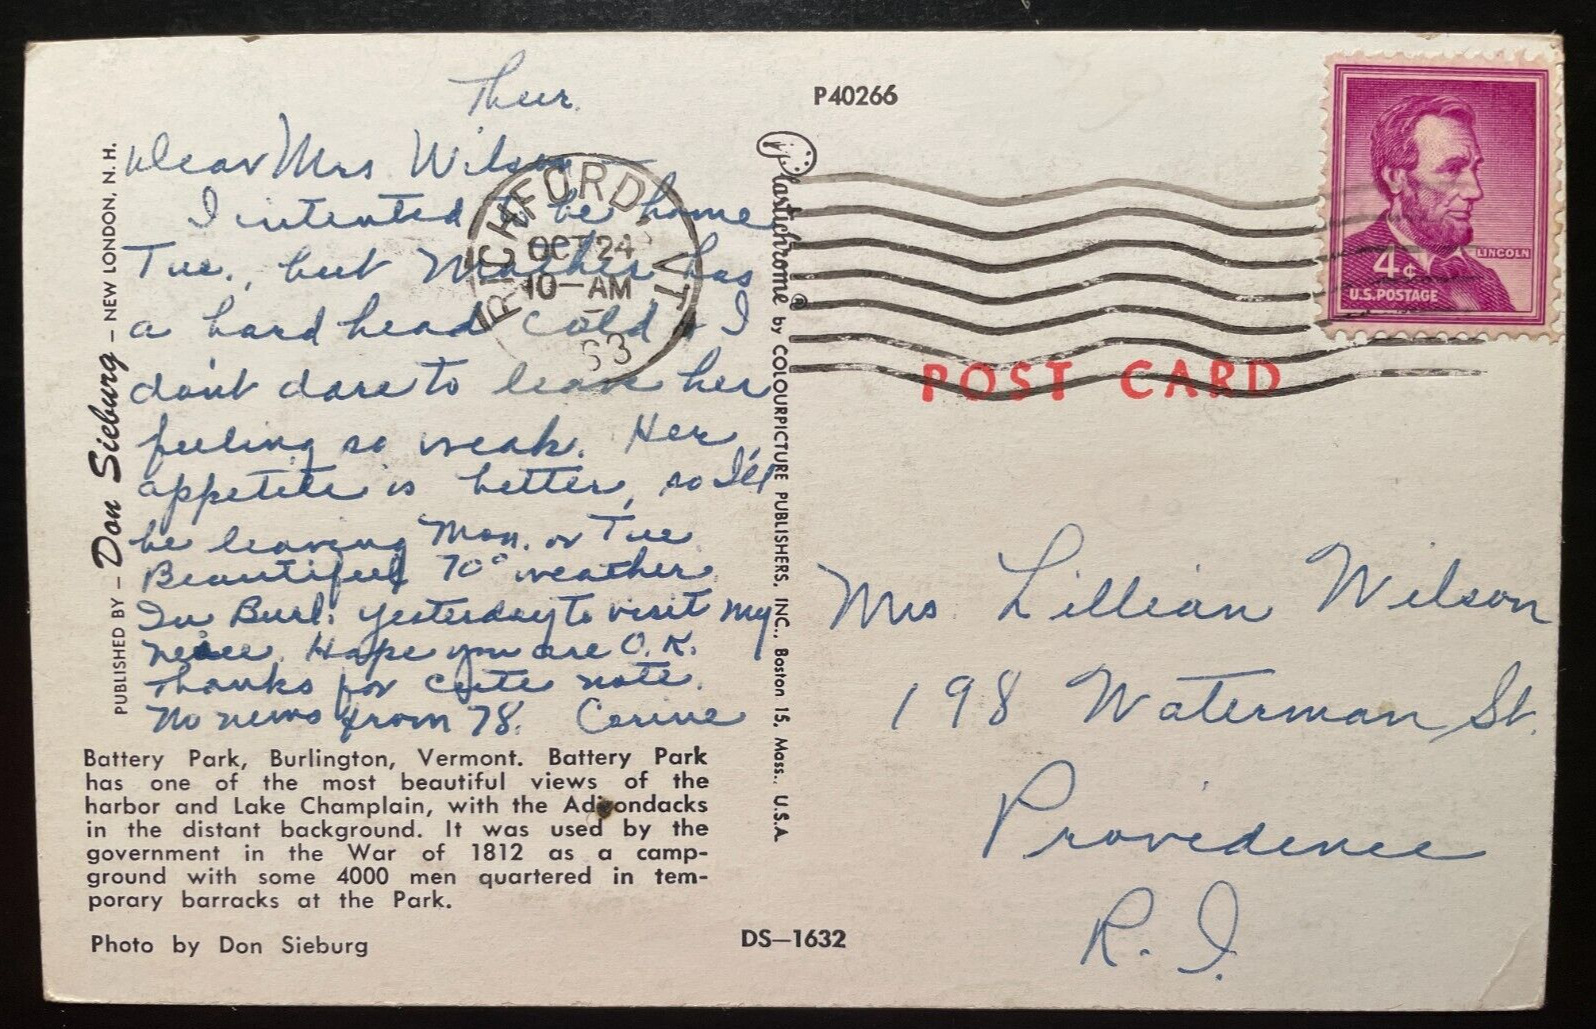 Thur.
Dear Mrs Wilson
I intented to be home
Tue., but Mother has
a hard head cold & I
don't dare to leave her
feeling so weak. Her
appetite is better, so I'll
be leaving Mon. or Tue
Beautiful 70° weather.
In Burl. yesterday to visit my
neice. Hope you are O.K.
Thanks for cute note.
No news from 78. Corine
Battery Park, Burlington, Vermont. Battery Park
has one of the most beautiful views of the
harbor and Lake Champlain, with the Adirondacks
in the distant background. It was used by the
government in the War of 1812 as a camp-
ground with some 4000 men quartered in tem-
porary barracks at the Park.
Photo by Don Sieburg
DS—1632
PUBLISHED BY – Don Sieburg – NEW LONDON, N. H.
Plastichrome ® by COLOURPICTURE PUBLISHERS, INC., Boston 15, Mass., U.S.A.
RICHFORD, VT
OCT 24
10—AM
63
P40266
POST CARD
LINCOLN
4¢
U.S. POSTAGE
Mrs Lillian Wilson
198 Waterman St.
Providence
R. I.